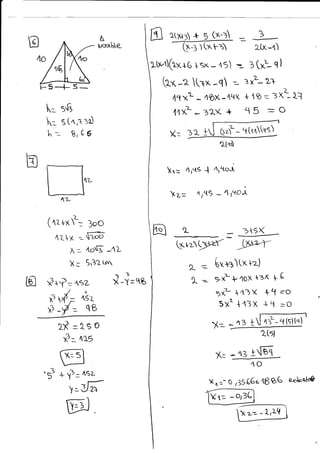 6
Δ
notable
10
10
5√3
60
5
5
h = 5√3
h = 5(1,732)
h = 8,66
7
12
12
(12+x)² = 300
12+x = √300
x = 10√3 - 12
x = 5,32 cm
8
x³+y³ = 152
x³-y³ = 98
x³+y³ = 152
x³-y³ = 98
2x³ = 250
x³ = 125
x = 5
5³ + y³ = 152
y = ∛27
y = 3
9
2(x+3) + 5(x-3)
(x-3)(x+3)
= 3
2(x-1)
2(x-1)(2x+6+5x-15) = 3(x²-9)
(2x-2)(7x-9) = 3x²-27
14x² - 18x - 14x + 18 = 3x²-27
11x² - 32x + 45 = 0
x = 32 ± √(32)² - 4(11)(45)
2(11)
x₁ = 1,45 + 1,40i
x₂ = 1,45 - 1,40i
10
2
(x+2)(x+2)
= 3+5x
(x+2)
2 = (5x+3)(x+2)
2 = 5x² + 10x + 3x + 6
5x² + 13x + 4 = 0
5x² + 13x + 4 = 0
x = -13 ± √13² - 4(5)(4)
2(5)
x = -13 ± √89
10
x₁ = -0,36
x₂ = -2,24